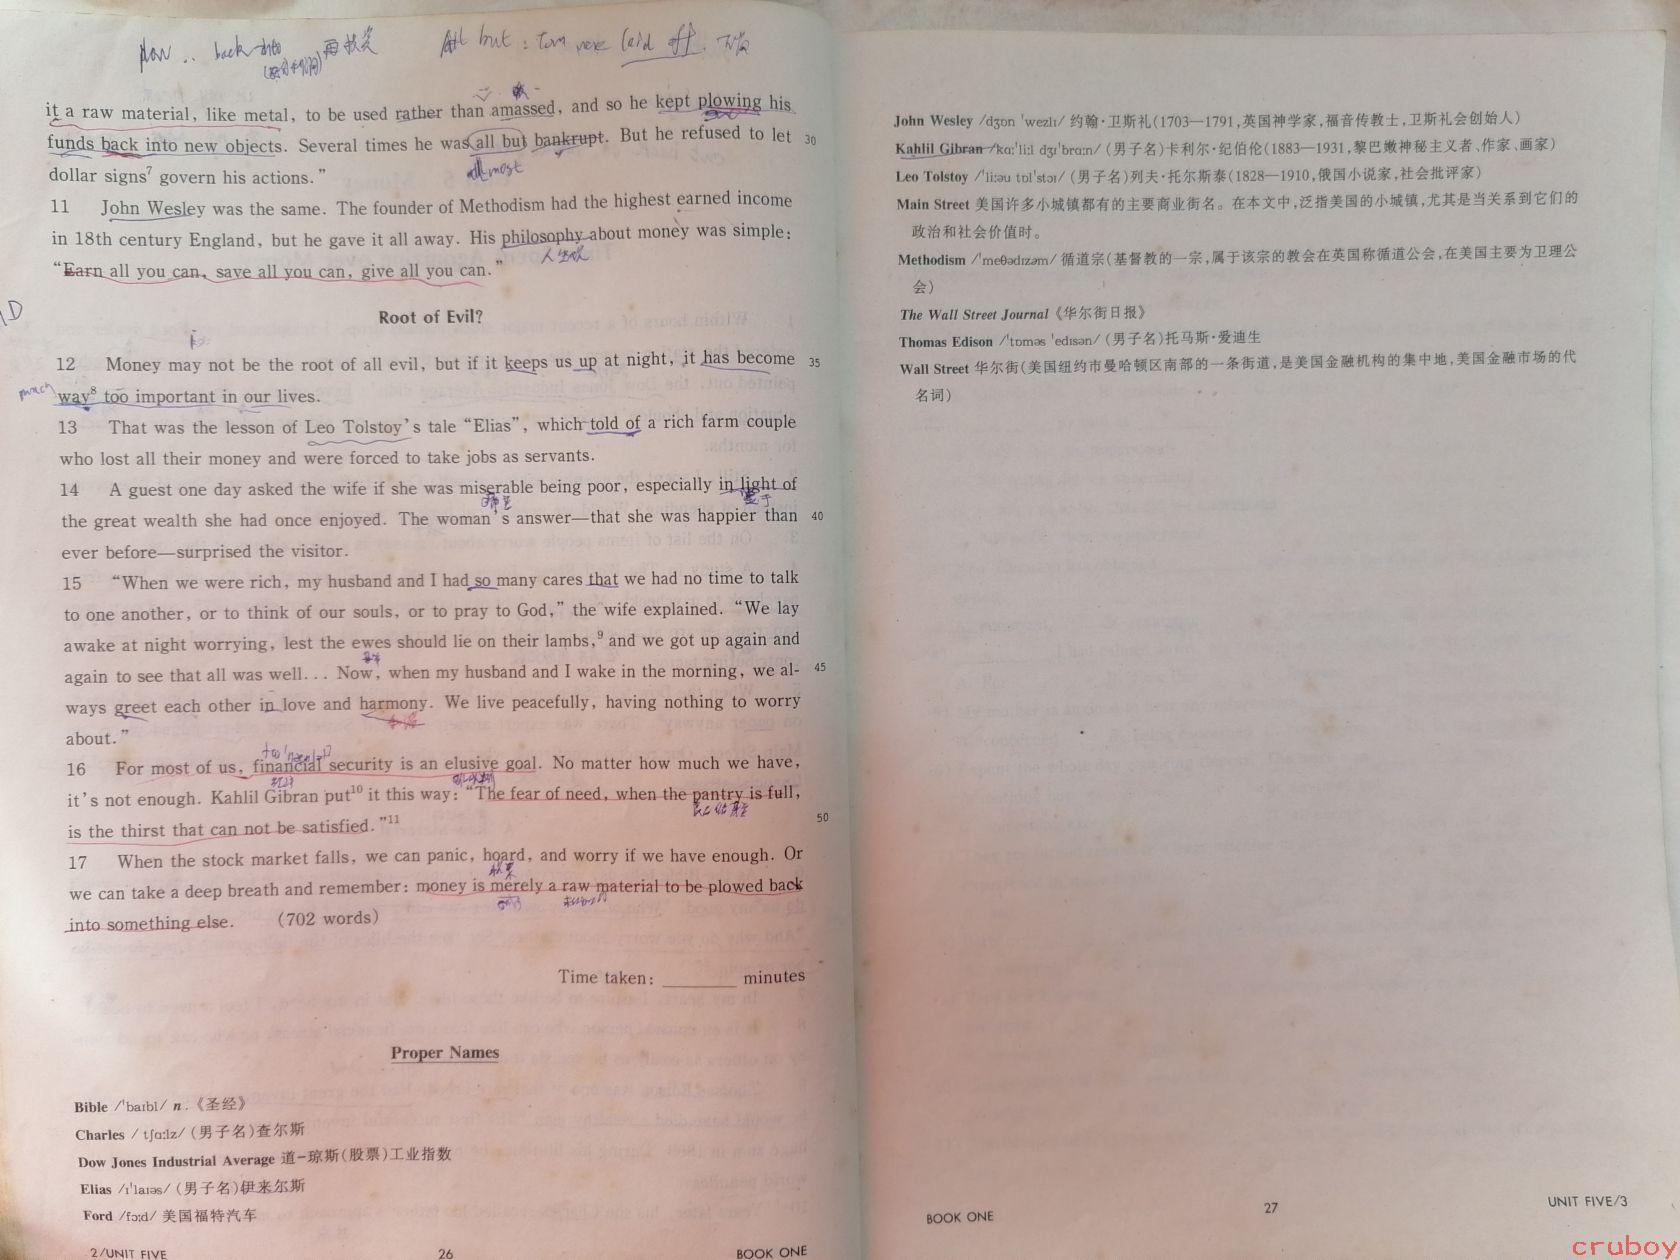 plow .. back into 再投资
All but :
it a raw material, like metal, to be used rather than amassed, and so he kept plowing his
funds back into new objects. Several times he was all but bankrupt. But he refused to let 30
almost
dollar signs⁷ govern his actions.”
11 John Wesley was the same. The founder of Methodism had the highest earned income
in 18th century England, but he gave it all away. His philosophy about money was simple:
人生观
“Earn all you can, save all you can, give all you can.”
Root of Evil?
12 Money may not be the root of all evil, but if it keeps us up at night, it has become 35
much
way⁸ too important in our lives.
13 That was the lesson of Leo Tolstoy’s tale “Elias”, which told of a rich farm couple
who lost all their money and were forced to take jobs as servants.
14 A guest one day asked the wife if she was miserable being poor, especially in light of
the great wealth she had once enjoyed. The woman’s answer—that she was happier than 40
ever before—surprised the visitor.
15 “When we were rich, my husband and I had so many cares that we had no time to talk
to one another, or to think of our souls, or to pray to God,” the wife explained. “We lay
awake at night worrying, lest the ewes should lie on their lambs,⁹ and we got up again and
again to see that all was well... Now, when my husband and I wake in the morning, we al- 45
ways greet each other in love and harmony. We live peacefully, having nothing to worry
about.”
16 For most of us, financial security is an elusive goal. No matter how much we have,
it’s not enough. Kahlil Gibran put¹⁰ it this way: “The fear of need, when the pantry is full,
is the thirst that can not be satisfied.”¹¹ 50
17 When the stock market falls, we can panic, hoard, and worry if we have enough. Or
we can take a deep breath and remember: money is merely a raw material to be plowed back
into something else. (702 words)
Time taken: ________ minutes
Proper Names
Bible /ˈbaɪbl/ n.《圣经》
Charles / tʃɑːlz/ (男子名)查尔斯
Dow Jones Industrial Average 道-琼斯(股票)工业指数
Elias /ɪˈlaɪəs/ (男子名)伊来尔斯
Ford /fɔːd/ 美国福特汽车
2/UNIT FIVE 26 BOOK ONE
John Wesley /dʒɒn ˈwezlɪ/ 约翰·卫斯礼(1703—1791,英国神学家,福音传教士,卫斯礼会创始人)
Kahlil Gibran /kɑːˈliːl dʒɪˈbrɑːn/ (男子名)卡利尔·纪伯伦(1883—1931,黎巴嫩神秘主义者、作家、画家)
Leo Tolstoy /ˈliːəu tɒlˈstɔɪ/ (男子名)列夫·托尔斯泰(1828—1910,俄国小说家,社会批评家)
Main Street 美国许多小城镇都有的主要商业街名。在本文中,泛指美国的小城镇,尤其是当关系到它们的
政治和社会价值时。
Methodism /ˈmeθədɪzəm/ 循道宗(基督教的一宗,属于该宗的教会在英国称循道公会,在美国主要为卫理公
会)
The Wall Street Journal《华尔街日报》
Thomas Edison /ˈtɒməs ˈedɪsən/ (男子名)托马斯·爱迪生
Wall Street 华尔街(美国纽约市曼哈顿区南部的一条街道,是美国金融机构的集中地,美国金融市场的代
名词)
BOOK ONE 27 UNIT FIVE/3
cruboy